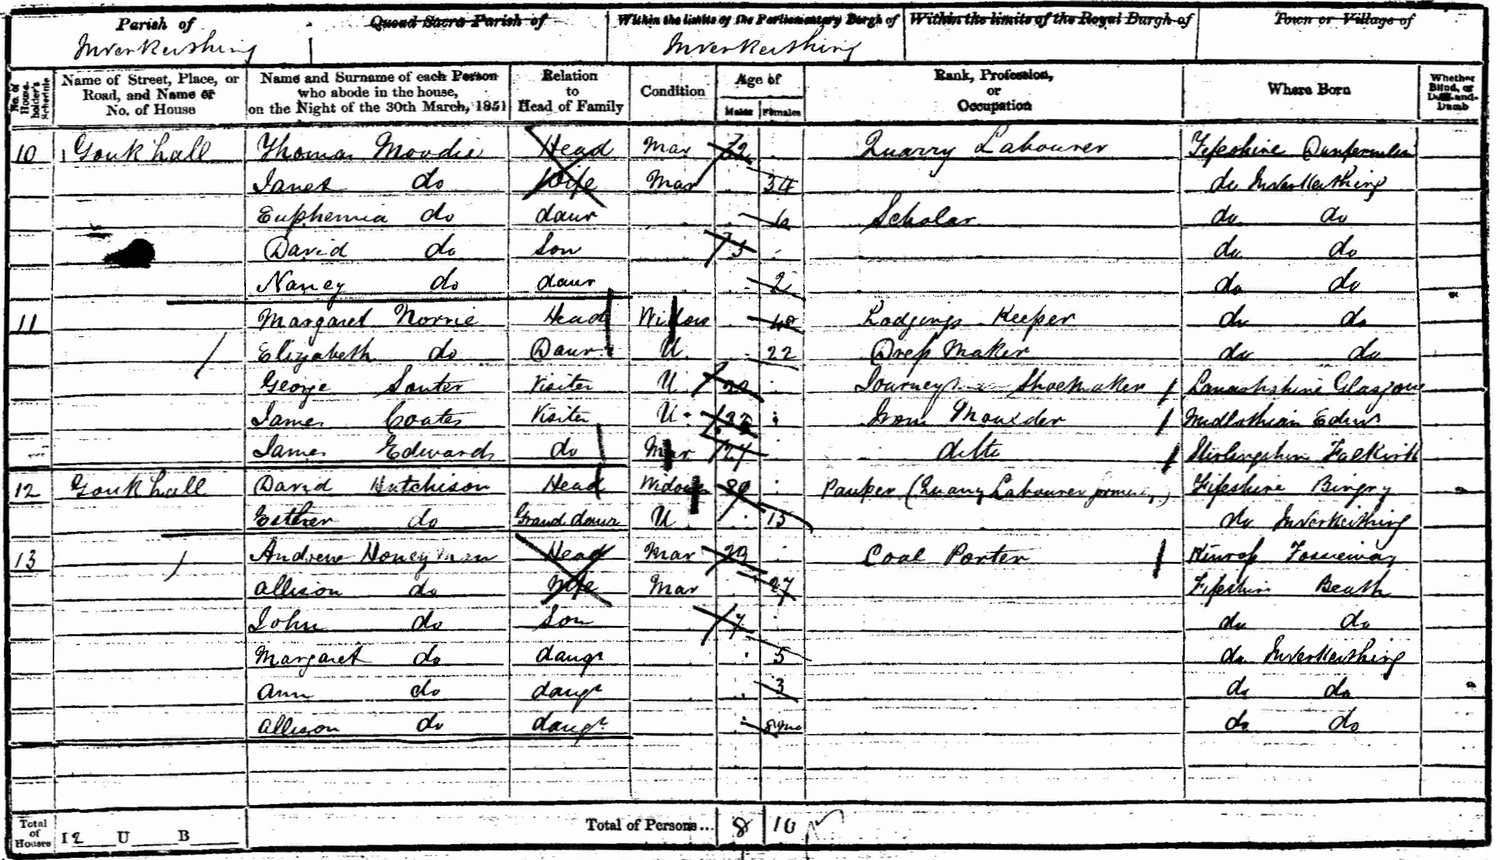 Parish of Quoad Sacra Parish of Within the limits of the Parliamentary Burgh of Within the limits of the Royal Burgh of Town or Village of
Inverkeithing Inverkeithing
No. of House-holder's Schedule Name of Street, Place, or Road, and Name or No. of House Name and Surname of each Person who abode in the house, on the Night of the 30th March, 1851 Relation to Head of Family Condition Age of Males Females Rank, Profession, or Occupation Where Born Whether Blind, or Deaf-and-Dumb
10 Goukhall Thomas Moodie Head Mar 32 Quarry Labourer Fifeshire Dunfermline
Janet do Wife Mar 34 do Inverkeithing
Euphemia do daur 6 Scholar do do
David do Son do do
Nancy do daur 2 do do
11 Margaret Norrie Head Widow 48 Lodgings Keeper do do
Elizabeth do Daur U 22 Dress Maker do do
George Souter Visiter U Journeyman Shoemaker Lanarkshire Glasgow
James Coates Visiter U Iron Moulder Midlothian Edinr
James Edwards do Mar 27 ditto Stirlingshire Falkirk
12 Goukhall David Hutchison Head Widower Pauper (Quarry Labourer formerly) Fifeshire Bingry
Esther do Grand daur U 15 do Inverkeithing
13 Andrew Honeyman Head Mar 29 Coal Porter Kinross Fossieway
Allison do Wife Mar 27 Fifeshire Beath
John do Son 7 do do
Margaret do daugr 5 do Inverkeithing
Ann do daugr 3 do do
Allison do daugr 8 mo do do
Total of Houses 12 U B Total of Persons... 8 10